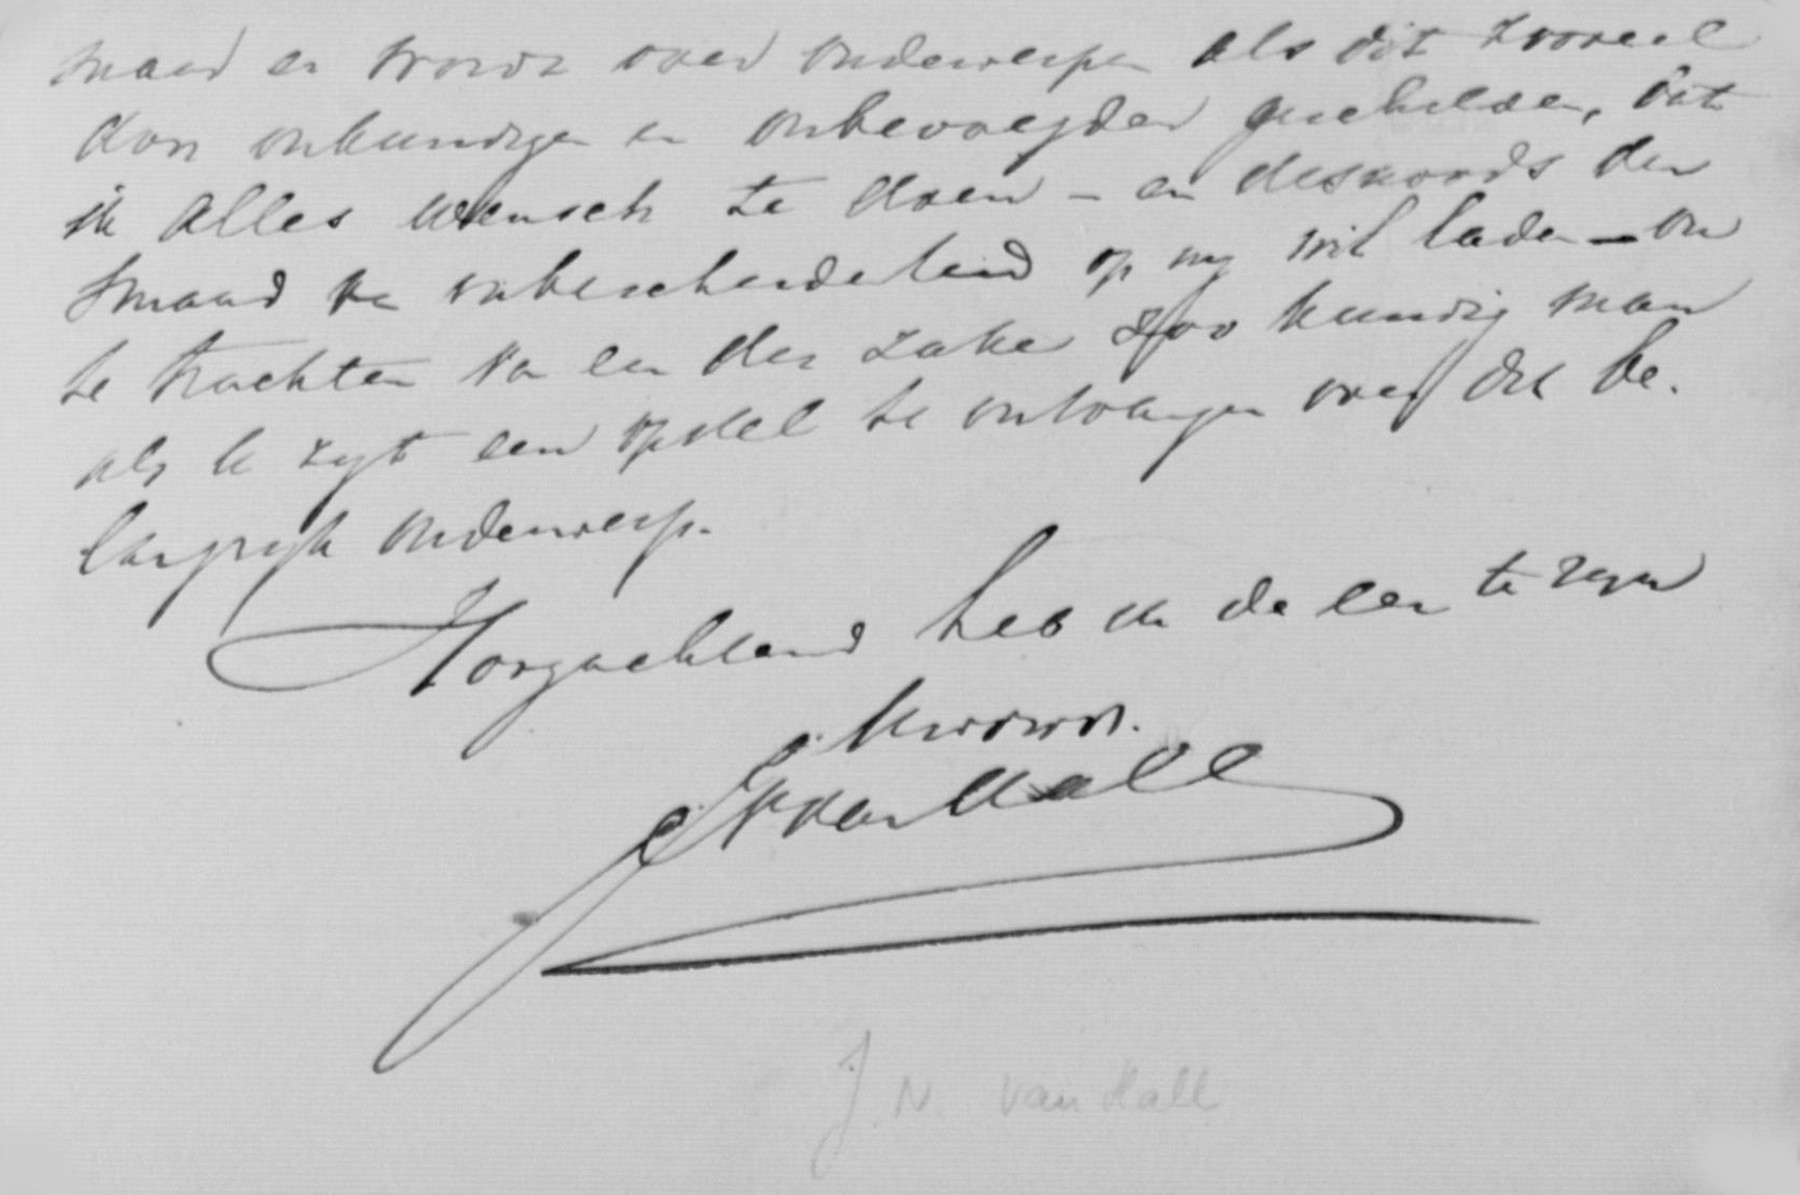 maar er wordt over onderwerpen als dit zooveel
door onkundigen en onbevoegden geschreven, dat
ik alles wensch te doen – en desnoods den
smaad van onbescheidenheid op mij wil laden – om
te trachten van een der zake zoo kundig man
als U zijt een opstel te ontvangen over dit be-
langrijk onderwerp.
Hoogachtend heb ik de eer te zijn
Uwdwdr.
J N van Hall
J. N. van Hall